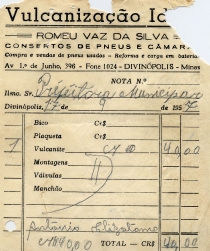 Vulcanização Id
ROMEU VAZ DA SILVA
CONSERTOS DE PNEUS E CÂMAR
Compra e vendas de pneus usados - Reforma e carga em bateria
Av 1.º de Junho, 396 - Fone 1024 - DIVINÓPOLIS - Minas
NOTA N.º
Ilmo. Sr. Prefeitura Municipal
Divinópolis, 17 de 9 de 1957
Bico Cr$
Plaqueta Cr$
1 Vulcanite 40,00
Montagens
Válvulas
Manchão
Antonio
TOTAL — CR$ 40,00